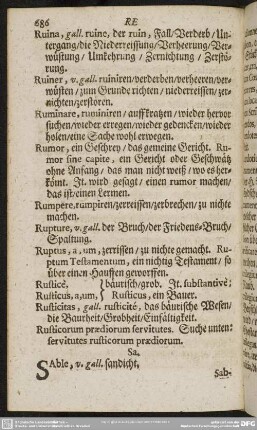 686 RE
Ruina, gall. ruine, der ruin, Fall/Verderb/Un-
tergang/die Niederreissung/Verheerung/Ver-
wüstung/Umkehrung/Zernichtung/Zerstö-
rung.
Ruiner, v. gall. ruiniren/verderben/verheeren/ver-
wüsten/zum Grunde richten/niederreissen/zer-
nichten/zerstören.
Ruminare, ruminiren/auffkratzen/wieder hervor
suchen/wieder erregen/wieder gedencken/wieder
holen/eine Sache wohl erwegen.
Rumor, ein Geschrey/das gemeine Gericht. Ru-
mor sine capite, ein Gericht oder Geschwätz
ohne Anfang/das man nicht weiß/wo es her-
kömt. It. wird gesagt/einen rumor machen/
das ist/einen Lermen.
Rumpere, rumpiren/zerreissen/zerbrechen/zu nichte
machen.
Rupture, v. gall. der Bruch/der Friedens-Bruch/
Spaltung.
Ruptus, a, um, zerrissen/zu nichte gemacht. Ru-
ptum Testamentum, ein nichtig Testament/so
über einen Hauffen geworffen.
Rusticè, } bäurisch/grob. It. substantivè:
Rusticus, a, um, } Rusticus, ein Bauer.
Rusticitas, gall. rusticité, das bäurische Wesen/
die Baurheit/Grobheit/Einfältigkeit.
Rusticorum prædiorum servitutes. Suche unter:
servitutes rusticorum prædiorum.
Sa.
SAble, v. gall. sandicht.
Sab-